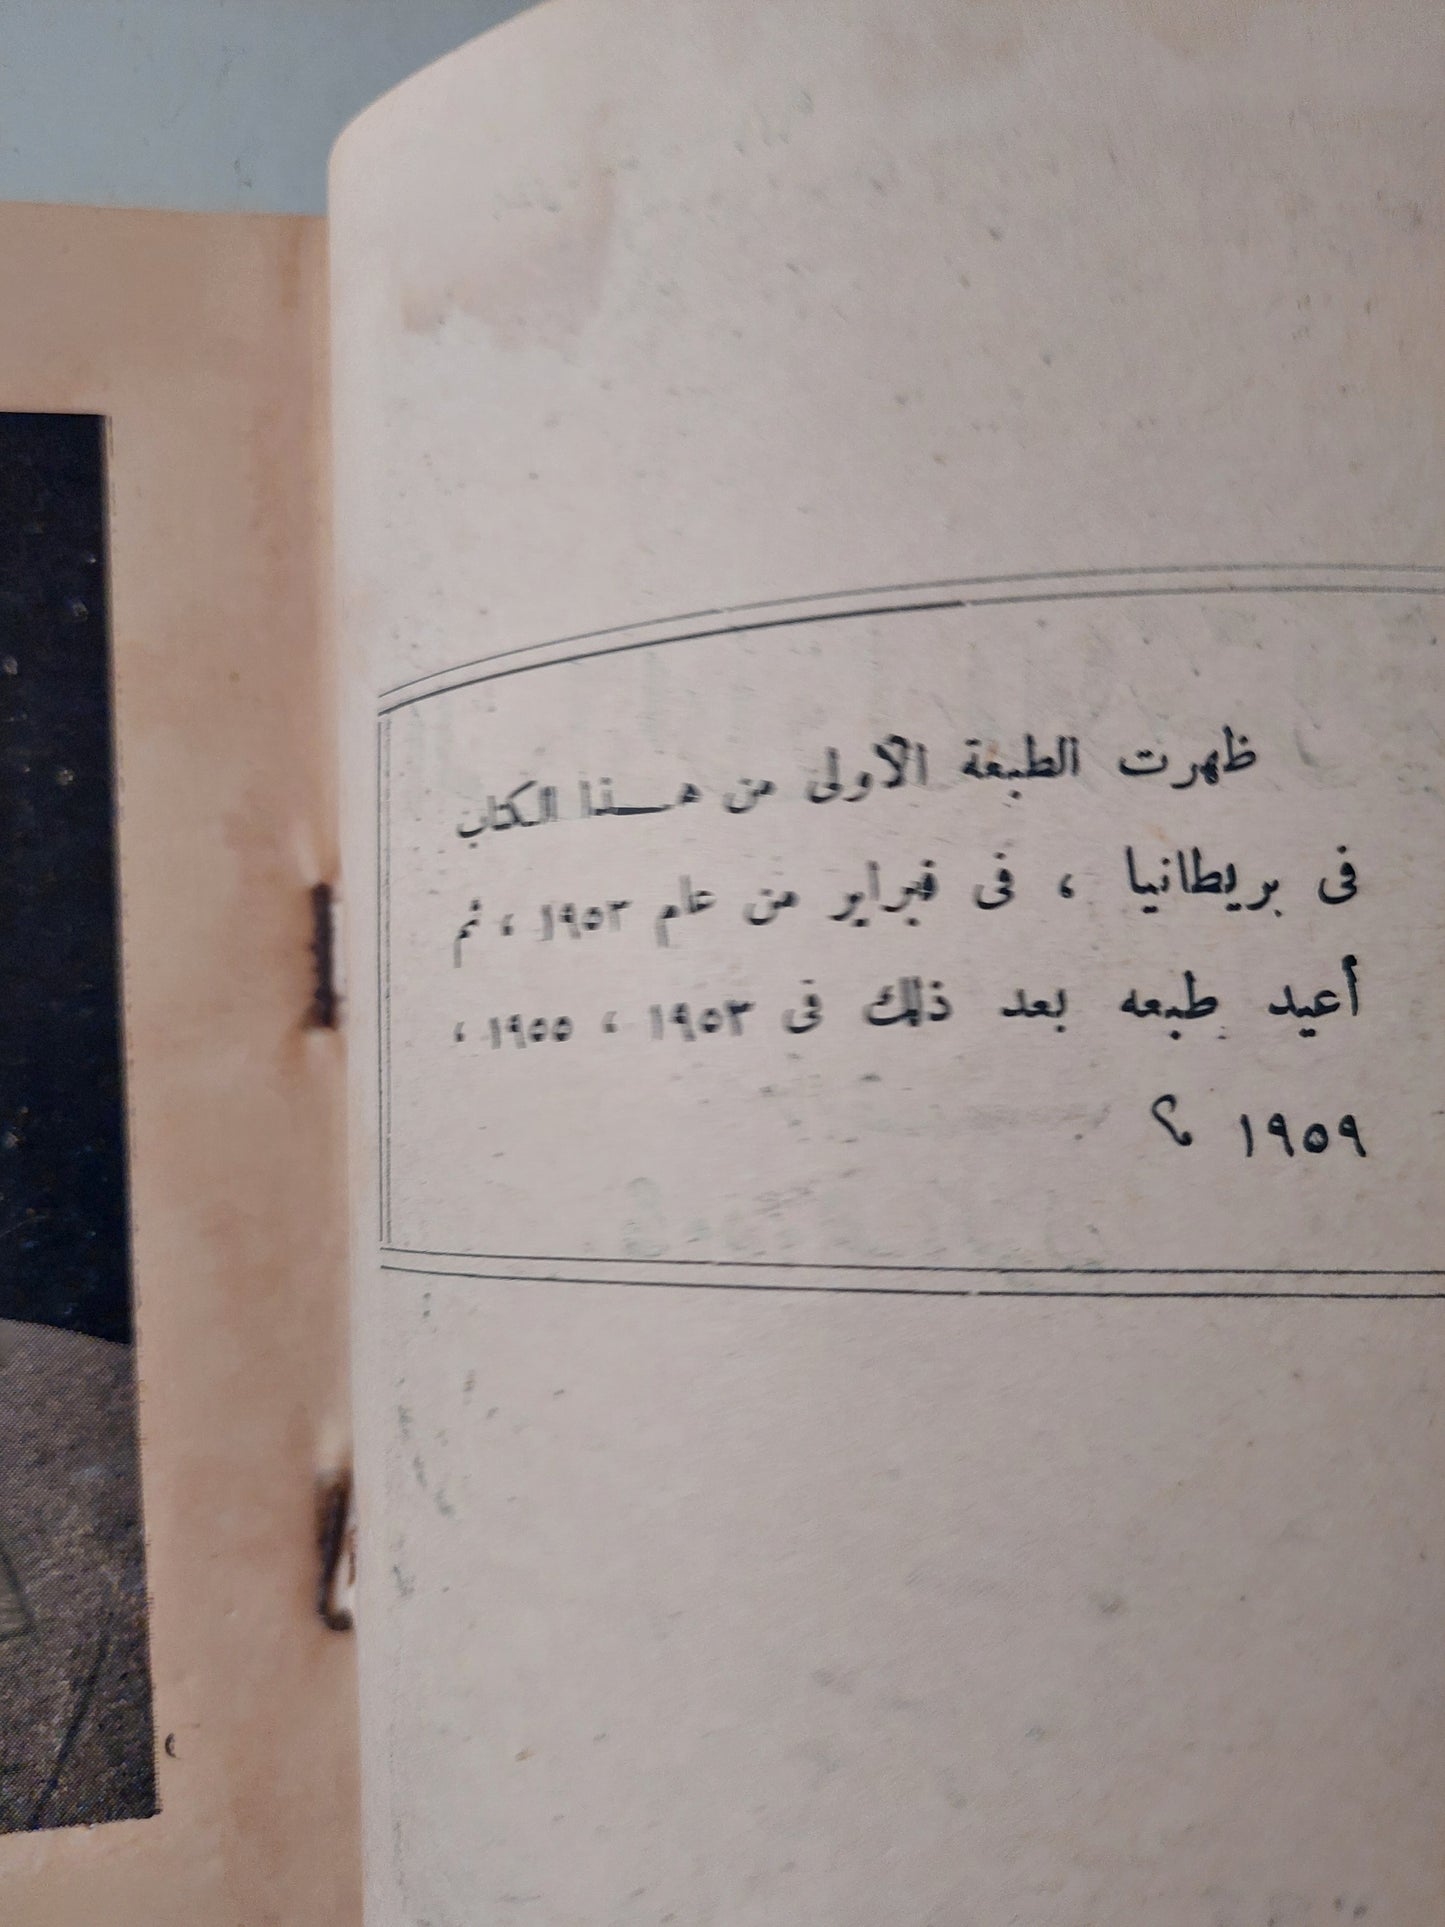 ظهرت الطبعة الأولى من هـــذا الكتاب
فى بريطانيا ، فى فبراير من عام ١٩٥٣ ، ثم
أعيد طبعه بعد ذلك فى ١٩٥٣ ، ١٩٥٥ ،
١٩٥٩ ؟